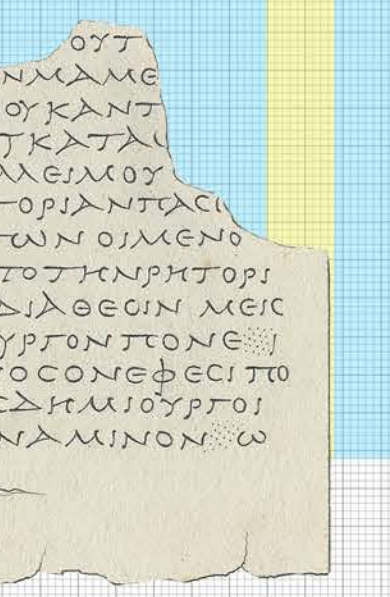 ΟΥΤ
ΝΜΑΜΕ
ΟΥΚΑΝΤ
ΤΚΑΤΑΙ
ΛΛΕΙΜΟΥ
ΤΟΡΙΑΝΠΑϹΙ
ΤΩΝ ΟΙΜΕΝΟ
ΤΟΤΗΝΡΗΤΟΡΙ
ΔΙΑΘΕϹΙΝ ΜΕΙϹ
ΥΡΓΟΝ ΠΟΝΕ Ι
ΟϹΟΝΕΦΕϹΙ ΠΟ
ϹΔΗΜΙΟΥΡΓΟΙ
ΝΑΜΙΝΟΝ Ω